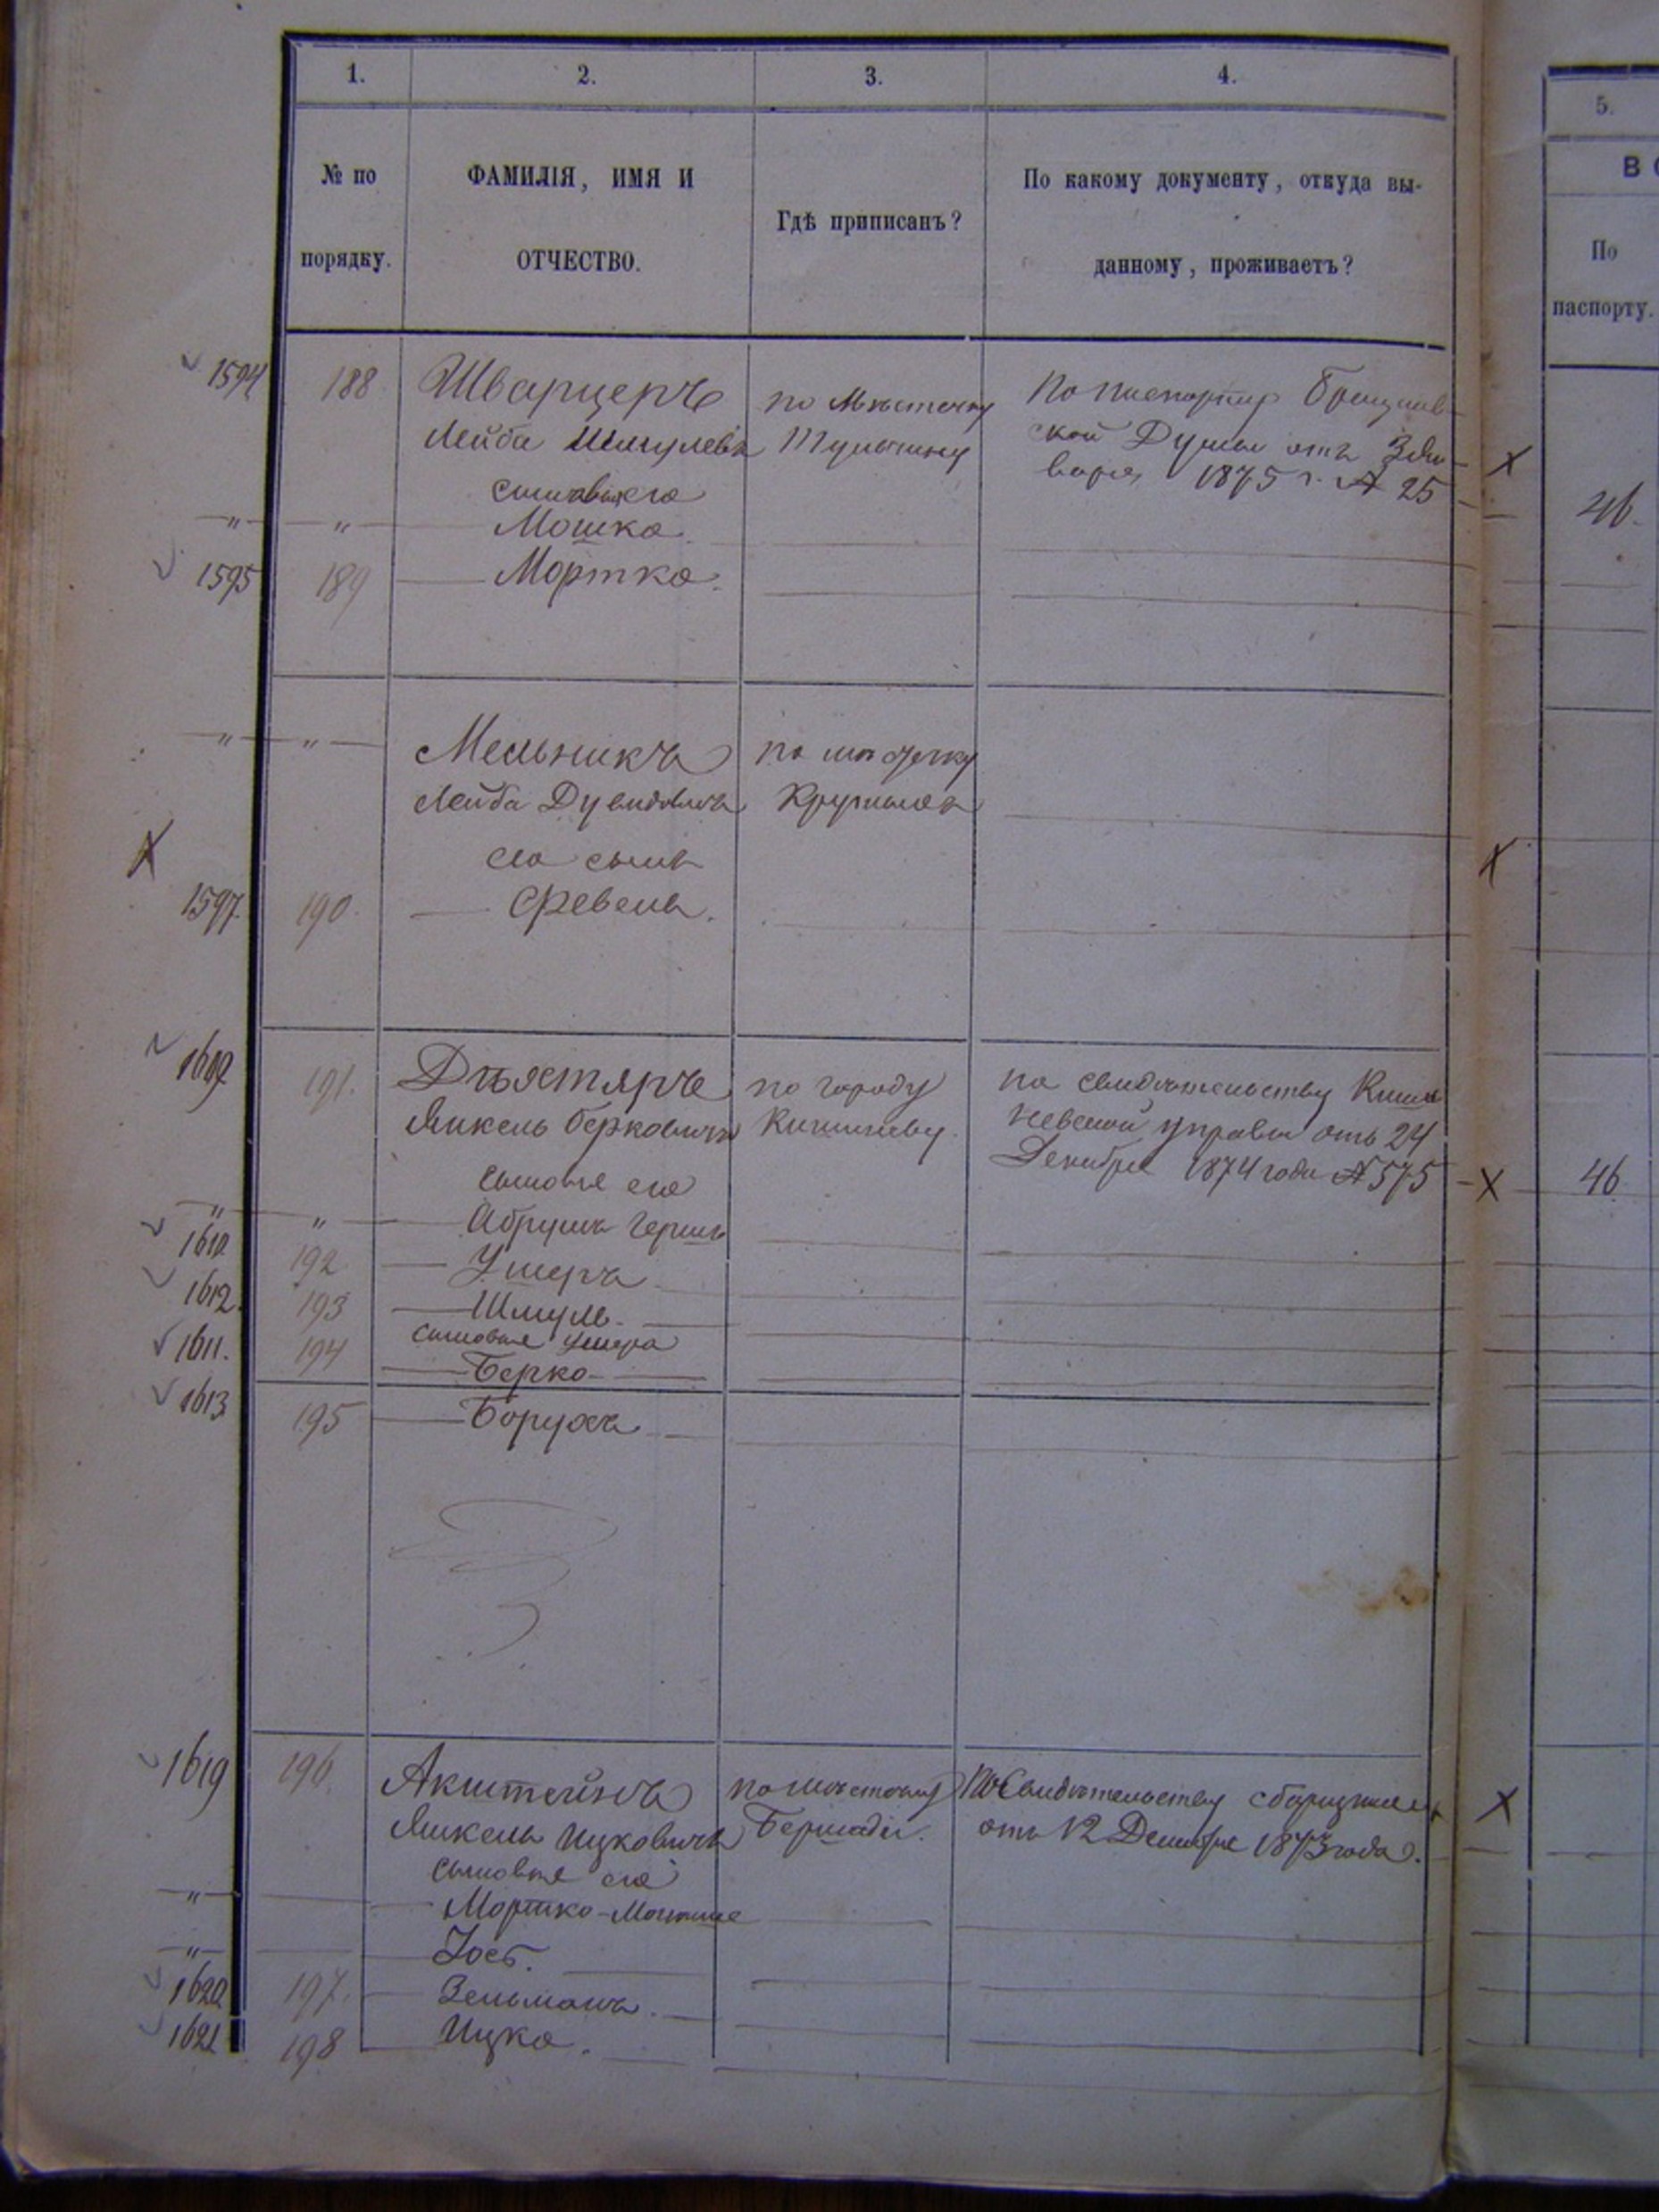 1. 2. 3. 4. 5.
№ по порядку.
ФАМИЛІЯ, ИМЯ И ОТЧЕСТВО.
Гдѣ приписанъ?
По какому документу, откуда выданному, проживаетъ?
В
По
паспорту.
1594 188 Шварцеръ по мѣстечку По паспорту Брацлав-
Лейба Шмулевъ Тульчину ской Думы отъ 3 Ян-
сыновья его варя 1875 г. № 25
46.
" " Мошко.
1595 189 Мортко.
" " Мельникъ по мѣстечку
Лейба Дувидовичъ
его сынъ
1597. 190. Файвель.
1609 191. Дѣхтяръ по городу по свидѣтельству Киши-
Янкель Берковичъ Кишиневу. невской управы отъ 24
сыновья его Декабря 1874 года № 575
46
" " Абрумъ Гершъ
1610 192 Ушеръ
1612. 193 Шмуль.
сыновья Ушера
1611. 194 Берко
1613 195 Борухъ
1619 196. Акштейнъ по мѣстечку По Свидѣтельству сборщика
Янкель Ицковичъ Бершади. отъ 12 Декабря 1873 года.
сыновья его
" Мортко-
" Іосъ.
1620 197. Зельманъ.
1621 198 Ицко.